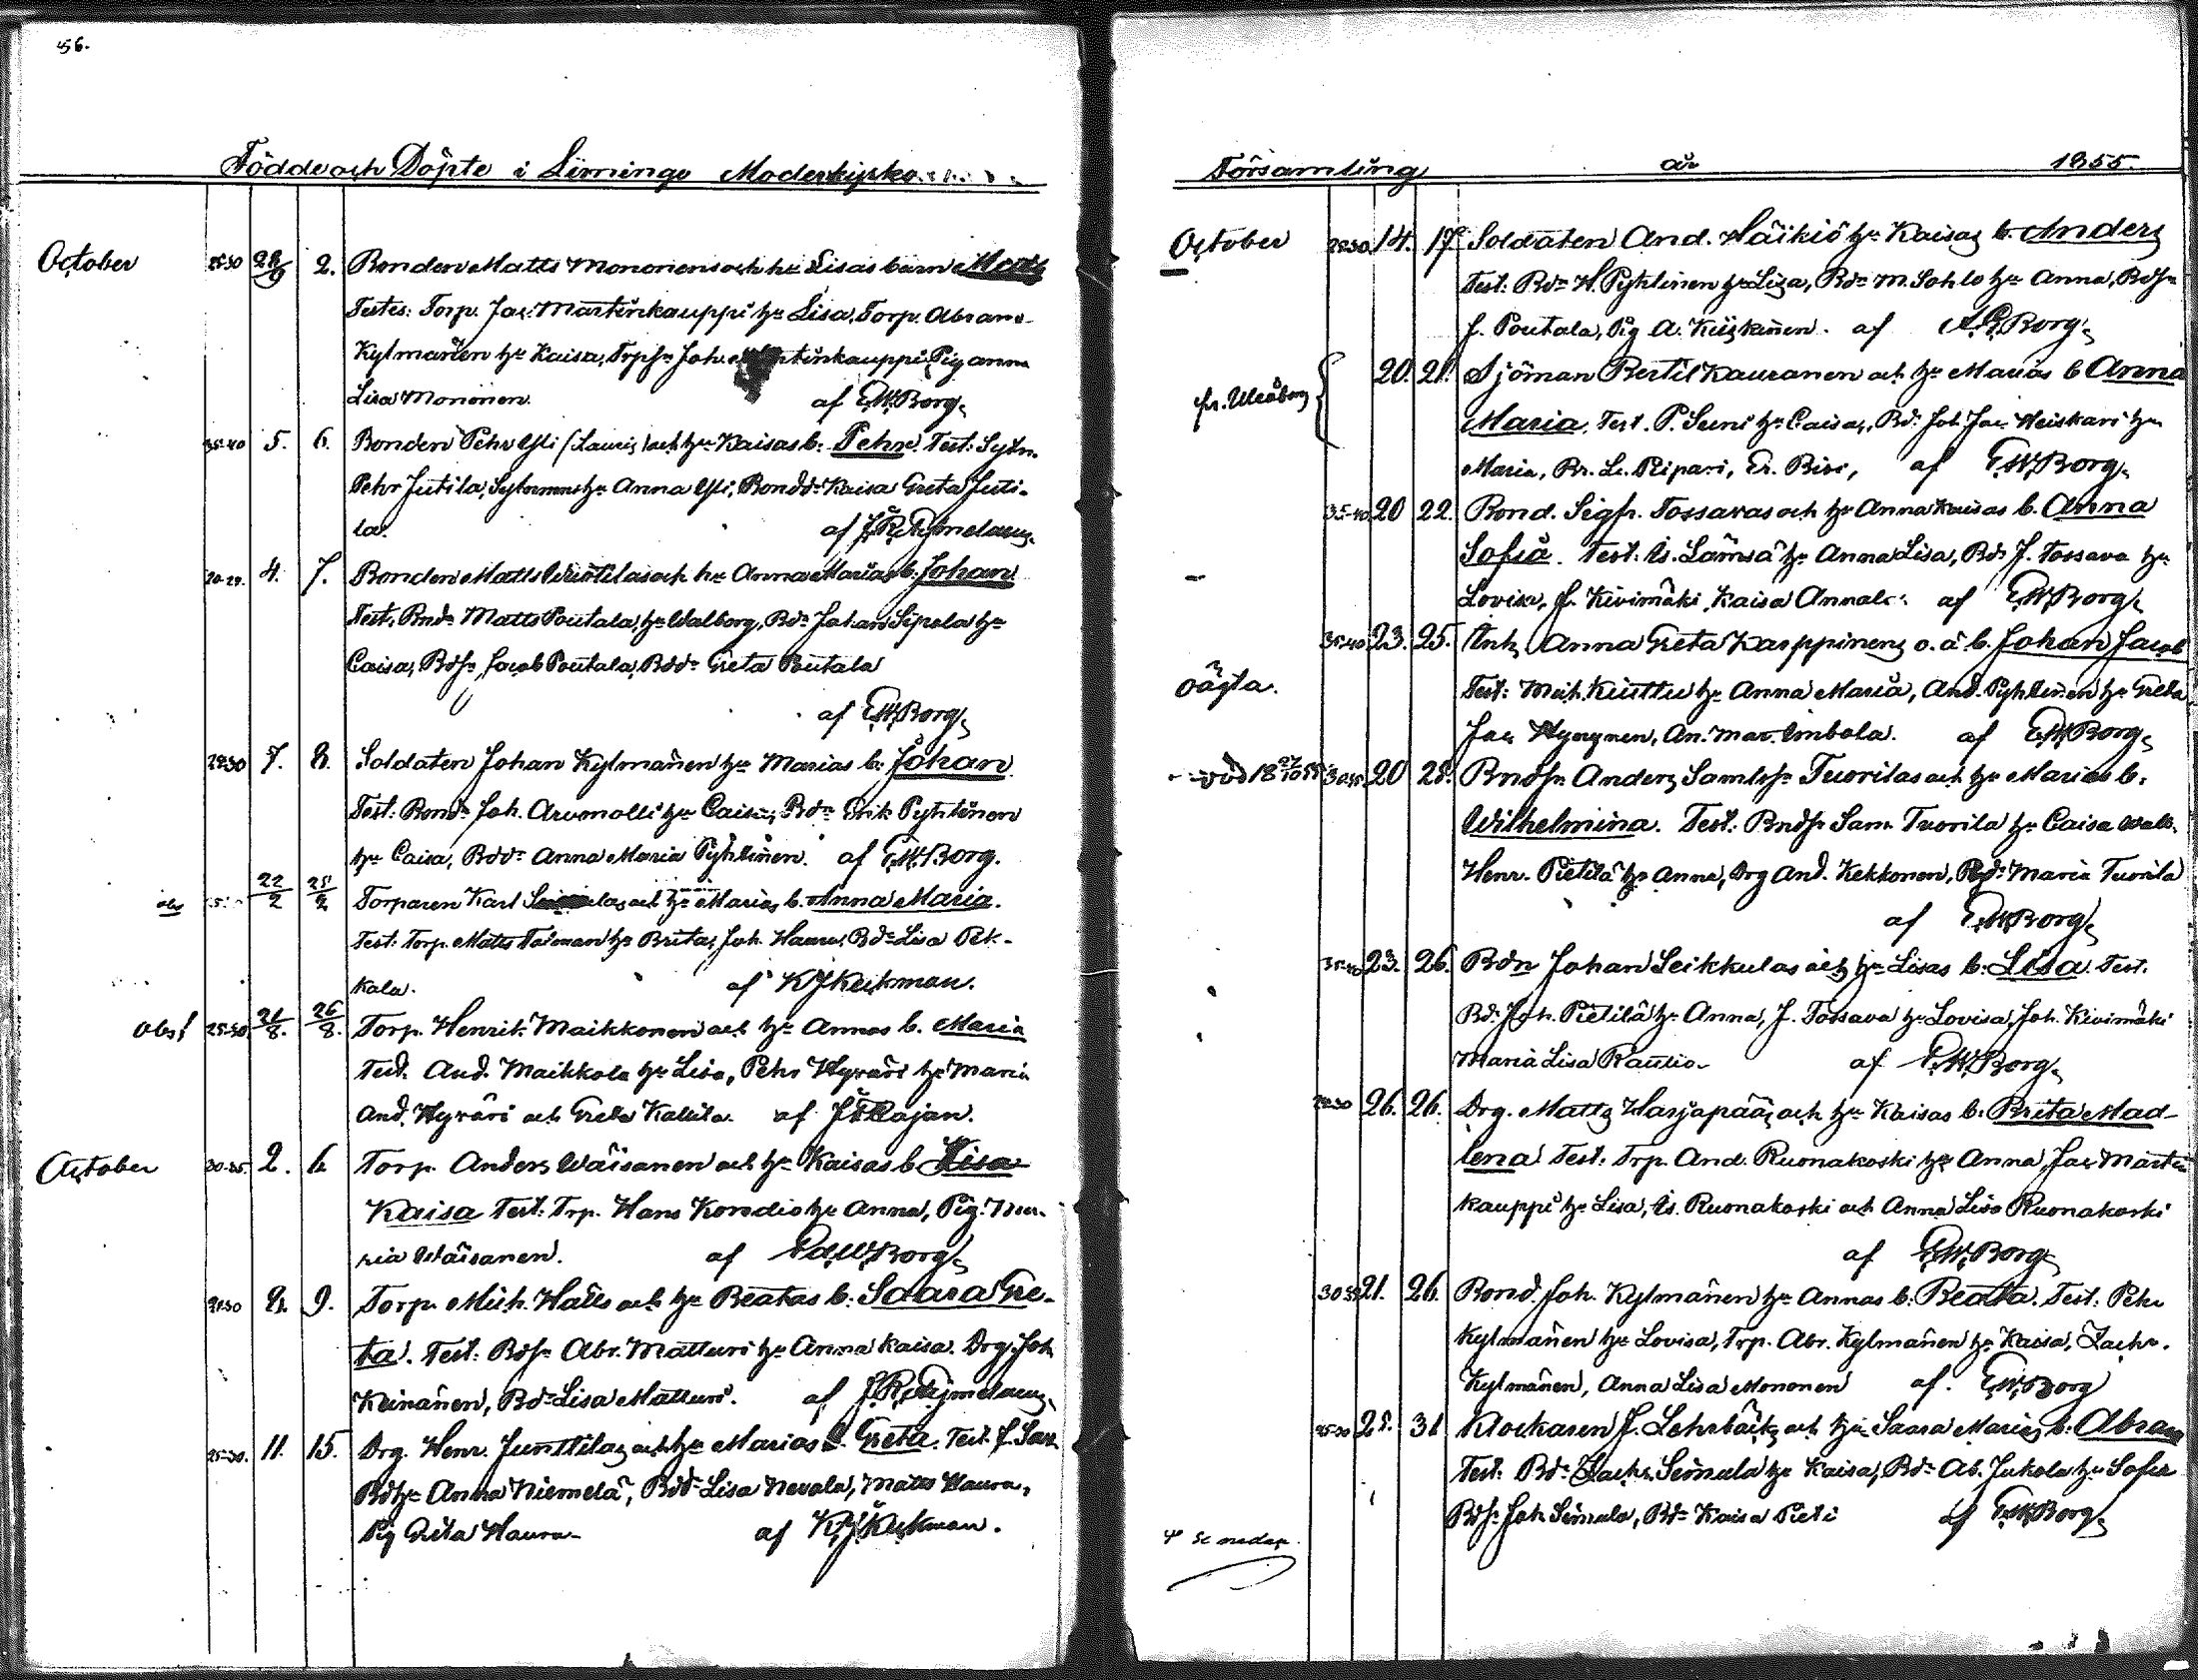 56.
Födde och Döpte i Limingo Moderkyrko
October 25-30 28/9 2. Bonden Matts Mononens och hu Lisas barn Matts
Testes: Torp. Jac. Martinkauppi hu Lisa, Torp. Abram
Kylmänen hu Kaisa, Trpsn Joh. Pig Anna
Lisa Mononen. af E.W.Borg.
35-40 5. 6. Bonden Pehr Yli (Lauri) och hu Kaisas b. Pehr. Test:
Pehr Jutila, hu Anna Yli, Bondd. Kaisa Greta Juti-
la. af
20-25. 4. 7. Bonden Matts och hu Anna Marias b. Johan
Test. Bnd Matts Poutala, hu Walborg, Bdn Johan Sipola hu
Caisa, Bdsn Jacob Poutala, Bdd. Greta Poutala
af E.W.Borg.
25-30 7. 8. Soldaten Johan Kylmänen hu Marias b. Johan
Test: Bond. Joh. hu Caisa, Bdn Erik Pyhtinen
hu Caisa, Bdd. Anna Maria Pyhtinen. af E.W.Borg.
obs 22/2 25/2 Torparen Karl och hu Marias b. Anna Maria.
Test: Torp. Matts hu Brita, Joh. Haura, Bd. Lisa Pek-
kala. af K.J.Keckman.
obs! 25-30 21/8. 26/8. Torp. Henrik Maikkonen och hu Annas b. Maria
Test. And. Maikkola hu Lisa, Pehr Hyväri hu Maria
And. Hyväri och Greta Kallila. af
October 30-35. 2. 6 Torp. Anders Wäisänen och hu Kaisas b. Lisa
Kaisa Test: Trp. Hans Kondio hu Anna, Pig. Ma-
ria Wäisänen. af Ed.W.Borg.
25-30 8. 9. Torp. Mich. Hälls och hu Beatas b. Saara Gre-
ta. Test: Bdsn Abr. Matturi hu Anna Kaisa. Drg. Joh.
Keinänen, Bd. Lisa Matturi. af
25-30. 11. 15. Drg. Henr. Junttilas och hu Marias b. Greta. Test.
Bdhu Anna Niemelä, Bdd. Lisa Nevala, Matts Haura,
Pig Greta Haura af K.J.Keckman.
Församling år 1855.
October 25-30. 14. 17. Soldaten And. Häikiö hu Kaisas b. Anders
Test. Bdn H. Pyhtinen hu Lisa, Bdn M. Sohlo hu Anna, Bdsn
J. Poutala, Pig A. Kiiskinen. af Borg.
fr. Uleåborg 20. 21. Sjöman Bertil Kauranen och hu Marias b Anna
Maria. Test. P. Suni hu Caisa, Bd. Joh. Jac. Heiskari hu
Maria, Br. L. Pipari, af E.W.Borg.
35-40 20 22. Bond. Sigfr. Tossavas och hu Anna Kaisas b. Anna
Sofia. Test: Is. Lämsä hu Anna Lisa, Bd J. Tossava hu
Lovisa, J. Kivimäki, Kaisa Annala af E.W.Borg.
oägta. 35-40 23. 25. Enk. Anna Greta Karppinens o. ä b. Johan Jacob
Test: Mich. Kiuttu hu Anna Maria, And. Pyhtinen hu Greta
Jac Hyrynen, An. Mar. Imbola. af E.W.Borg.
död 18 27/10 55 30-35. 20 28. Bndsn Anders Samlssn Tuorilas och hu Marias b.
Wilhelmina. Test: Bndsn Sam. Tuorila hu Caisa Walb.
Henr. Pietilä hu Anna, Drg And. Kekkonen, Bdd. Maria Tuorila
af E.W.Borg.
35-40 23. 26. Bdn Johan Leikkulas och hu Lisas b. Lisa. Test.
Bd. Joh. Pietilä hu Anna, J. Tossava hu Lovisa, Joh. Kivimäki
Maria Lisa Rautio. af E.W.Borg.
25-30 26. 26. Drg. Matts Harjapääs och hu Kaisas b. Brita Mad-
lena. Test: Trp. And. Ruonakoski hu Anna, Jac Martin
kauppi hu Lisa, Is. Ruonakoski och Anna Lisa Ruonakoski
af E.W.Borg.
30 35 21. 26. Bond. Joh. Kylmänen hu Annas b. Beata. Test: Pehr
Kylmänen hu Lovisa, Trp. Abr. Kylmänen hu Kaisa, Zachr.
Kylmänen, Anna Lisa Mononen af. E.W.Borg
25-30 28. 31 Klockaren J. Lehrbäcks och hu Saara Marias b. Abram
Test: Bd. Zachr. Seimula hu Kaisa, Bd. Ab. Jukola hu Sofia
Bdsn Joh Seimula, Bd. Kaisa Pieti af E.W.Borg.
se nedan.